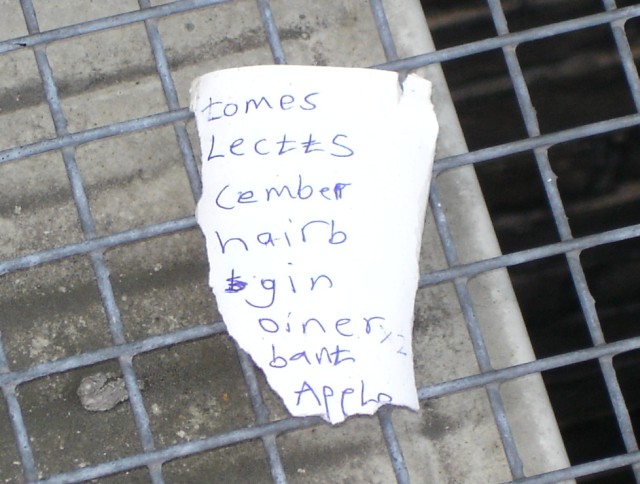 tomes
Lectts
Cember
hairb
gin
oiner 1/2
bant
Applo